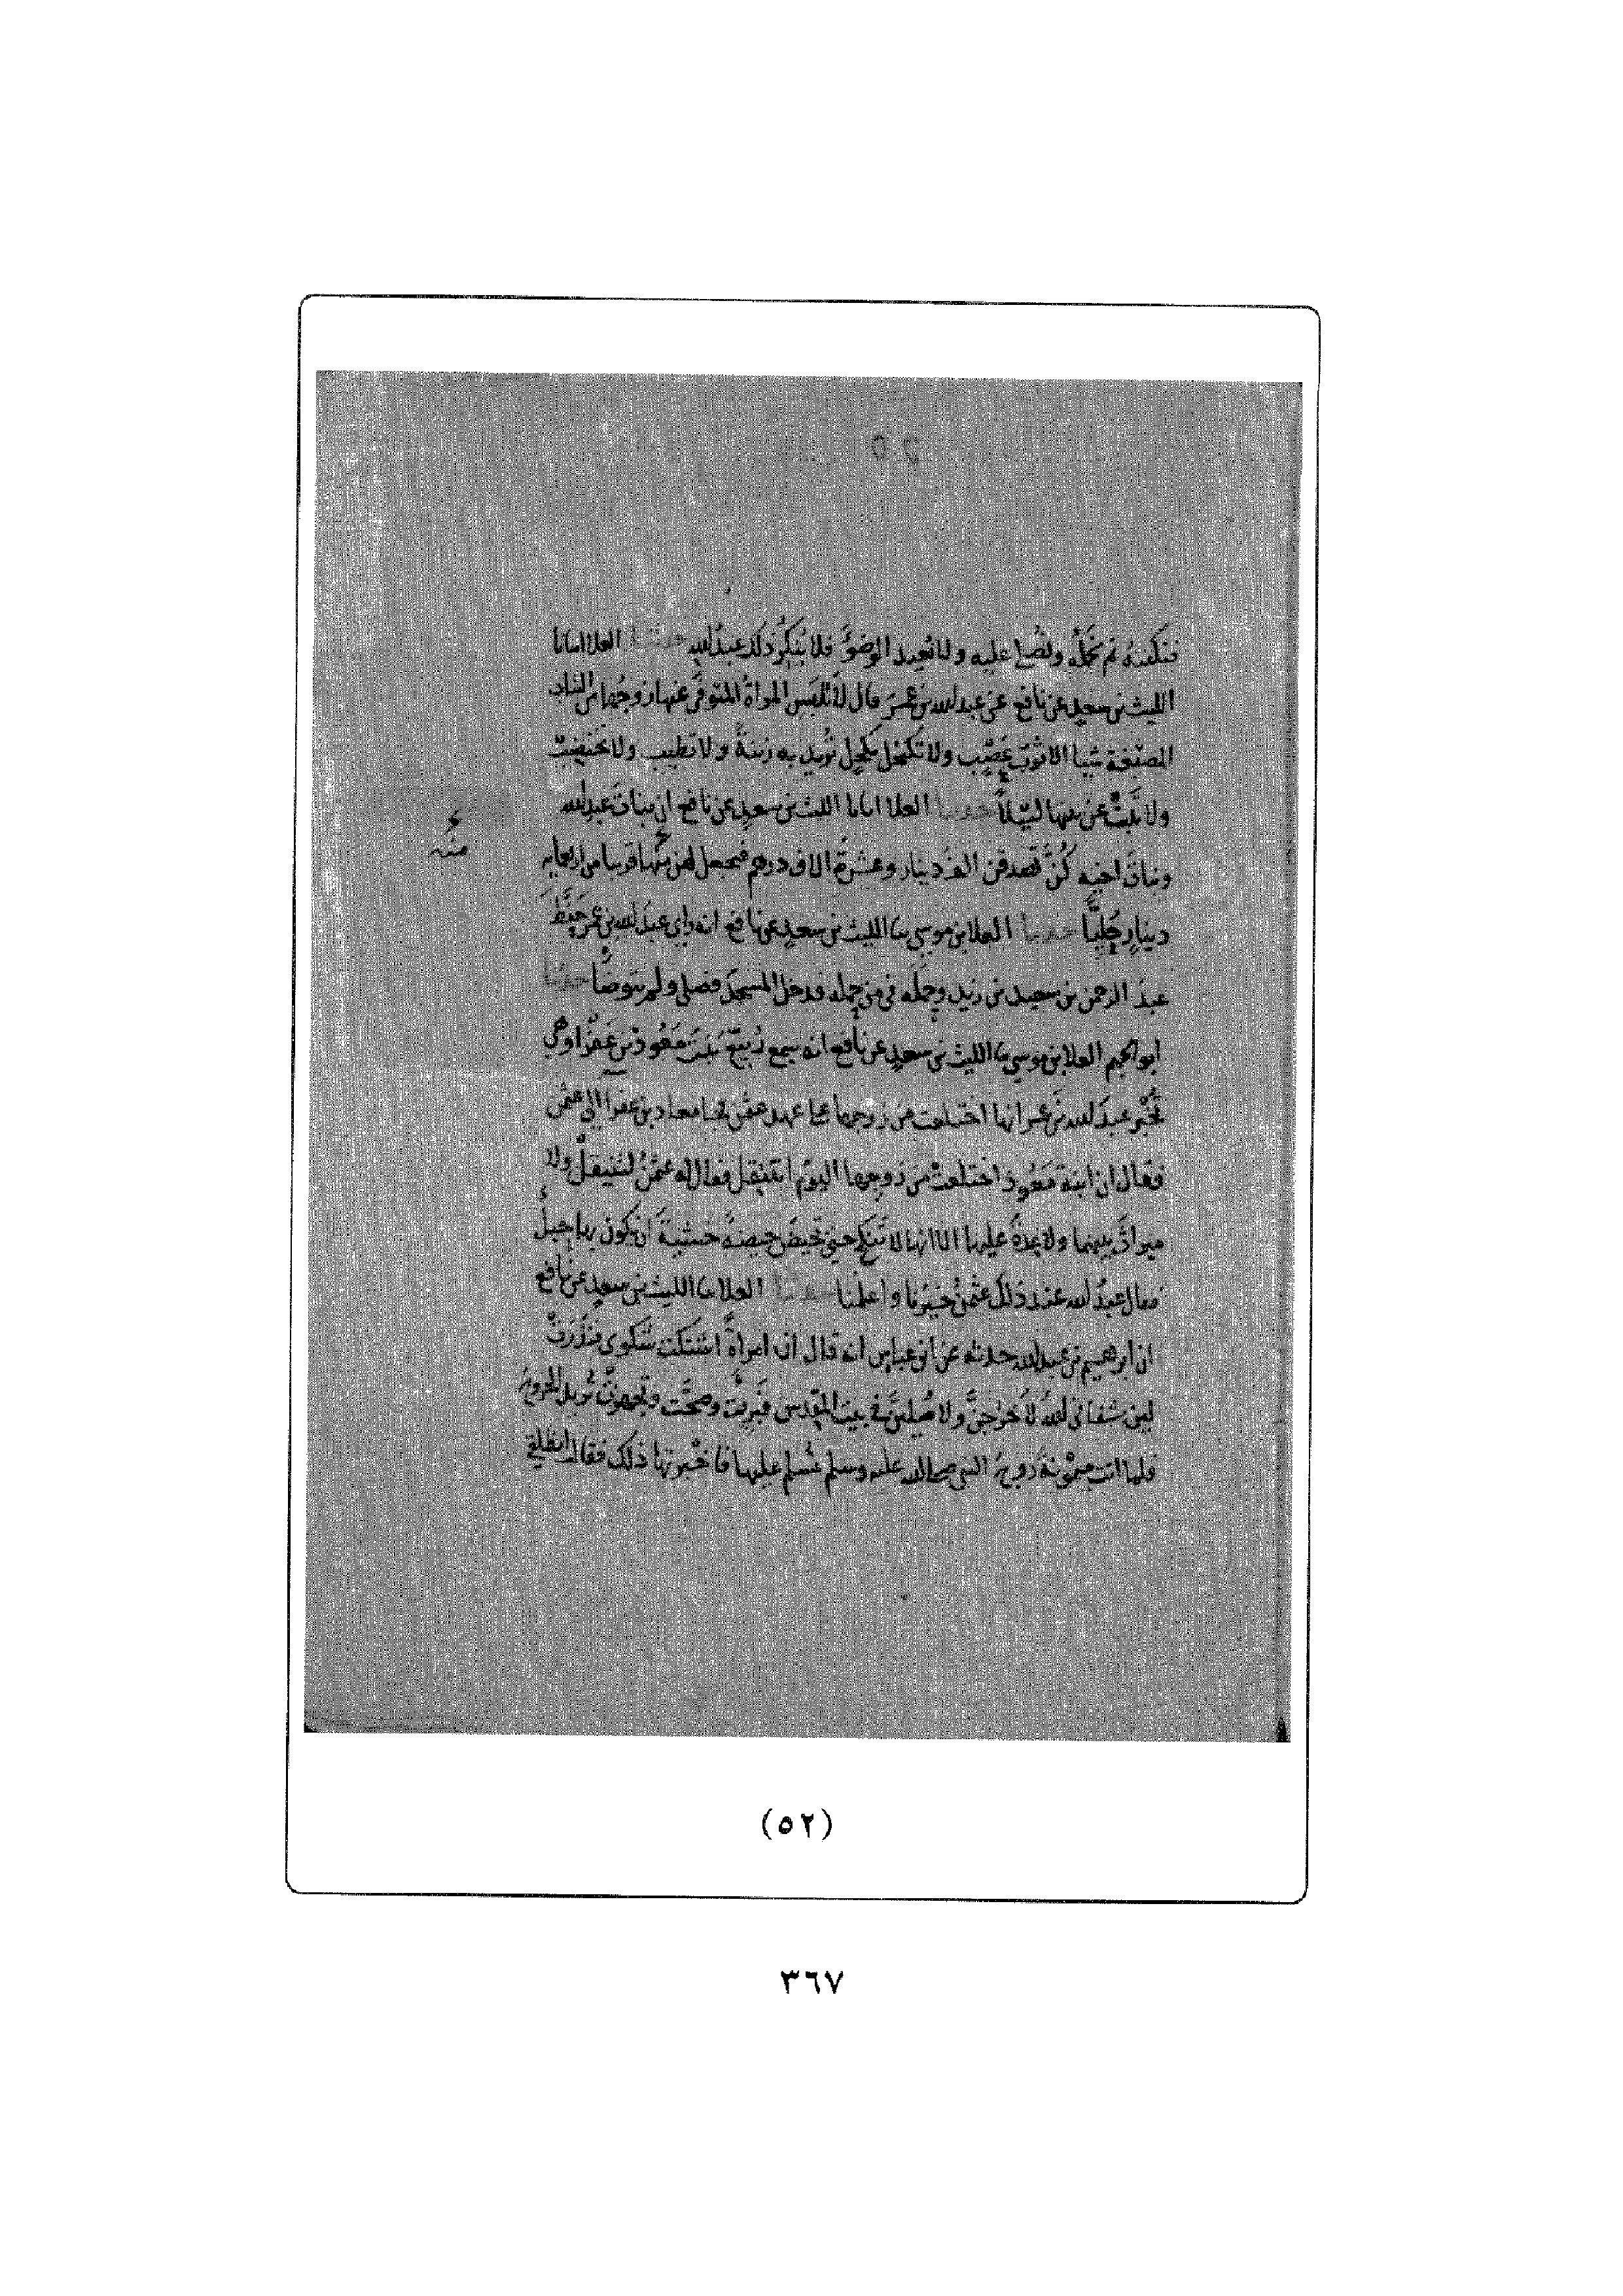 فنكفنه ثم نحمله ونصلي عليه ولا نعيد الوضو فلا ينكر ذلك عبد الله حدثنا العلا انبانا
الليث بن سعد عن نافع عن عبد الله بن عمر قال لا تلبس المراة المتوفى عنها زوجها من الثياب
المصبغة شيا الا ثوب عصب ولا تكتحل بكحل تريد به زينة ولا تطيب ولا تختضب
ولا تبت عن بيتها ليلا حدثنا العلا انبانا الليث بن سعد عن نافع ان بنات عبد الله
وبنات اخيه كن تصدقن الف دينار وعشرة الاف درهم فيجعل لهن منها قريبا من اربعمايه
منه
دينار حليا حدثنا العلا بن موسي نا الليث بن سعد عن نافع انه راى عبد الله بن عمر حنط
عبد الرحمن بن سعيد بن زيد وحمله في من حمله فدخل المسجد فصلى ولم يتوضأ حدثنا
ابو الجهم العلا بن موسي نا الليث بن سعد عن نافع انه سمع ربيع بنت معوذ بن عفرا وهي
تخبر عبد الله بن عمر انها اختلعت من زوجها على عهد عثمن فجا معاد بن عفرا الى عثمن
فقال ان ابنة معوذ اختلعت من زوجها اليوم اتنتقل فقال له عثمن لتنتقل ولا
ميراث بينهما ولا عدة عليها الا انها لا تنكح حتى تحيض حيضة خشية ان يكون بها حبل
فقال عبد الله عند ذلك عثمن خيرنا واعلمنا حدثنا العلا نا الليث بن سعد عن نافع
ان ابرهيم بن عبد الله حدثه عن ابن عباس انه قال ان امراة اشتكت شكوى فنذرت
لين شفاني الله لاخرجن ولاصلين في بيت المقدس فبرئت وصحت وتجهزت تريد الخروج
فلما اتت ميمونة زوج النبي صلى الله عليه وسلم تسلم عليها فاخبرتها ذلك فقالت انطلقي
(٥٢)
٣٦٧